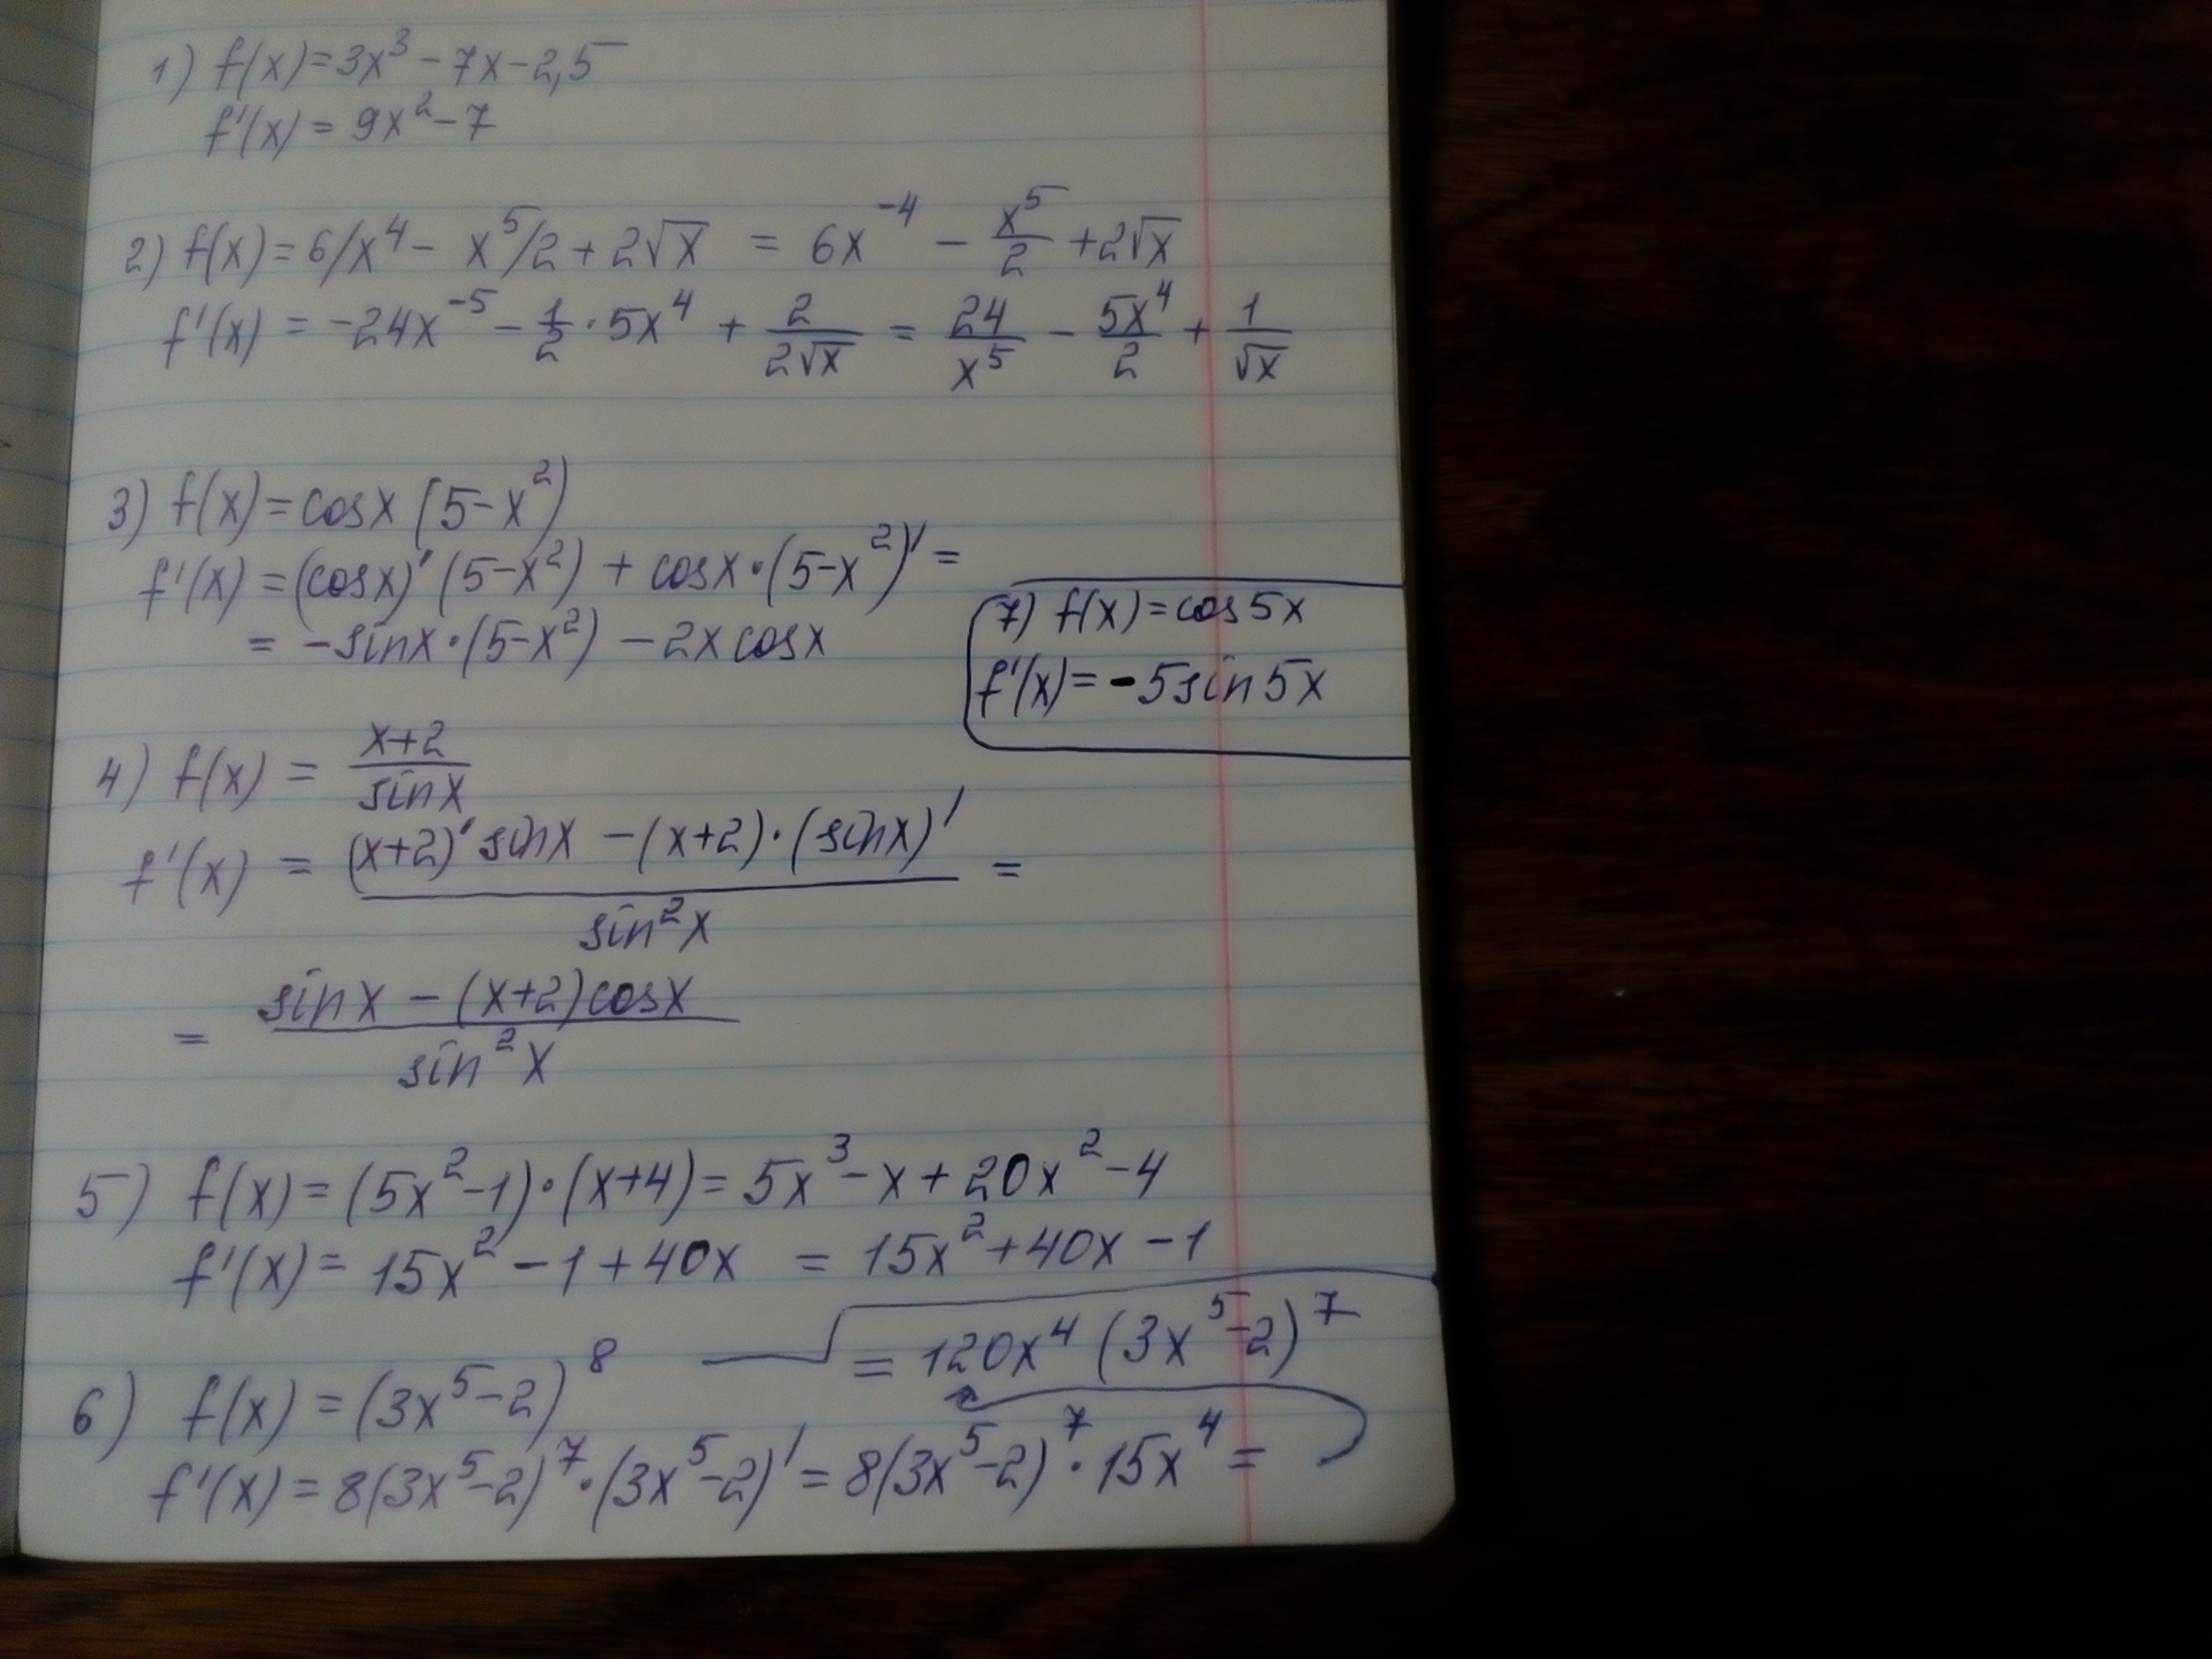 1) f(x)=3x³-7x-2,5
f'(x) = 9x²-7
2) f(x)=6/x⁴- x⁵/2+2√x = 6x⁻⁴ - x⁵/2 +2√x
f'(x) = -24x⁻⁵ - 1/2·5x⁴ + 2/(2√x) = 24/x⁵ - 5x⁴/2 + 1/√x
3) f(x)=cosx (5-x²)
f'(x) =(cosx)'(5-x²) + cosx·(5-x²)'=
= -sinx·(5-x²) -2xcosx
7) f(x)=cos5x
f'(x)=-5sin5x
4) f(x) = (x+2)/sinx
f'(x) = ((x+2)'sinx -(x+2)·(sinx)')/sin²x =
= (sinx -(x+2)cosx)/sin²x
5) f(x)=(5x²-1)·(x+4)=5x³-x+20x²-4
f'(x)=15x²-1+40x = 15x²+40x-1
6) f(x)=(3x⁵-2)⁸
f'(x)=8(3x⁵-2)⁷·(3x⁵-2)'=8(3x⁵-2)⁷·15x⁴=
=120x⁴(3x⁵-2)⁷